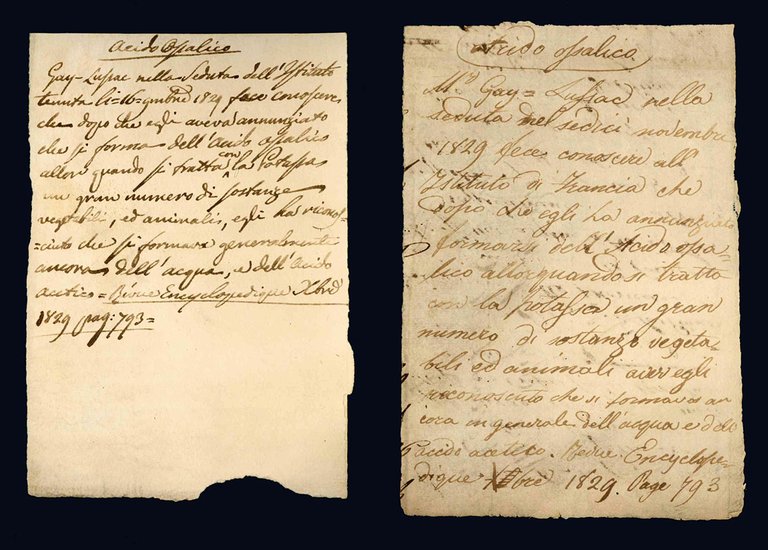 Acido Ossalico
Gay-Lussac nella Seduta dell'Istituto
tenuta li=16=9mbre 1829 fece conoscere
che dopo che egli aveva annunziato
che si forma dell'Acido ossalico
allor quando si tratta con la Potassa
un gran numero di sostanze
vegetabili, ed animali, egli ha ricono-
=sciuto che si formava generalmente
ancora dell'acqua, e dell'Acido
acetico= Revue Encyclopedique Xbre
1829 pag: 793=
Acido ossalico
Mr Gay=Lussac nella
seduta dei sedici novembre
1829 fece conoscere all'
Istituto di Francia che
dopo che egli ha annunziato
formarsi dell'Acido ossa-
lico allorquando si tratta
con la potassa un gran
numero di sostanze vegeta-
bili ed animali aver egli
riconosciuto che si formava an
cora in generale dell'acqua e dell
acido acetico. Revue Encyclope-
dique Xbre 1829. Page 793